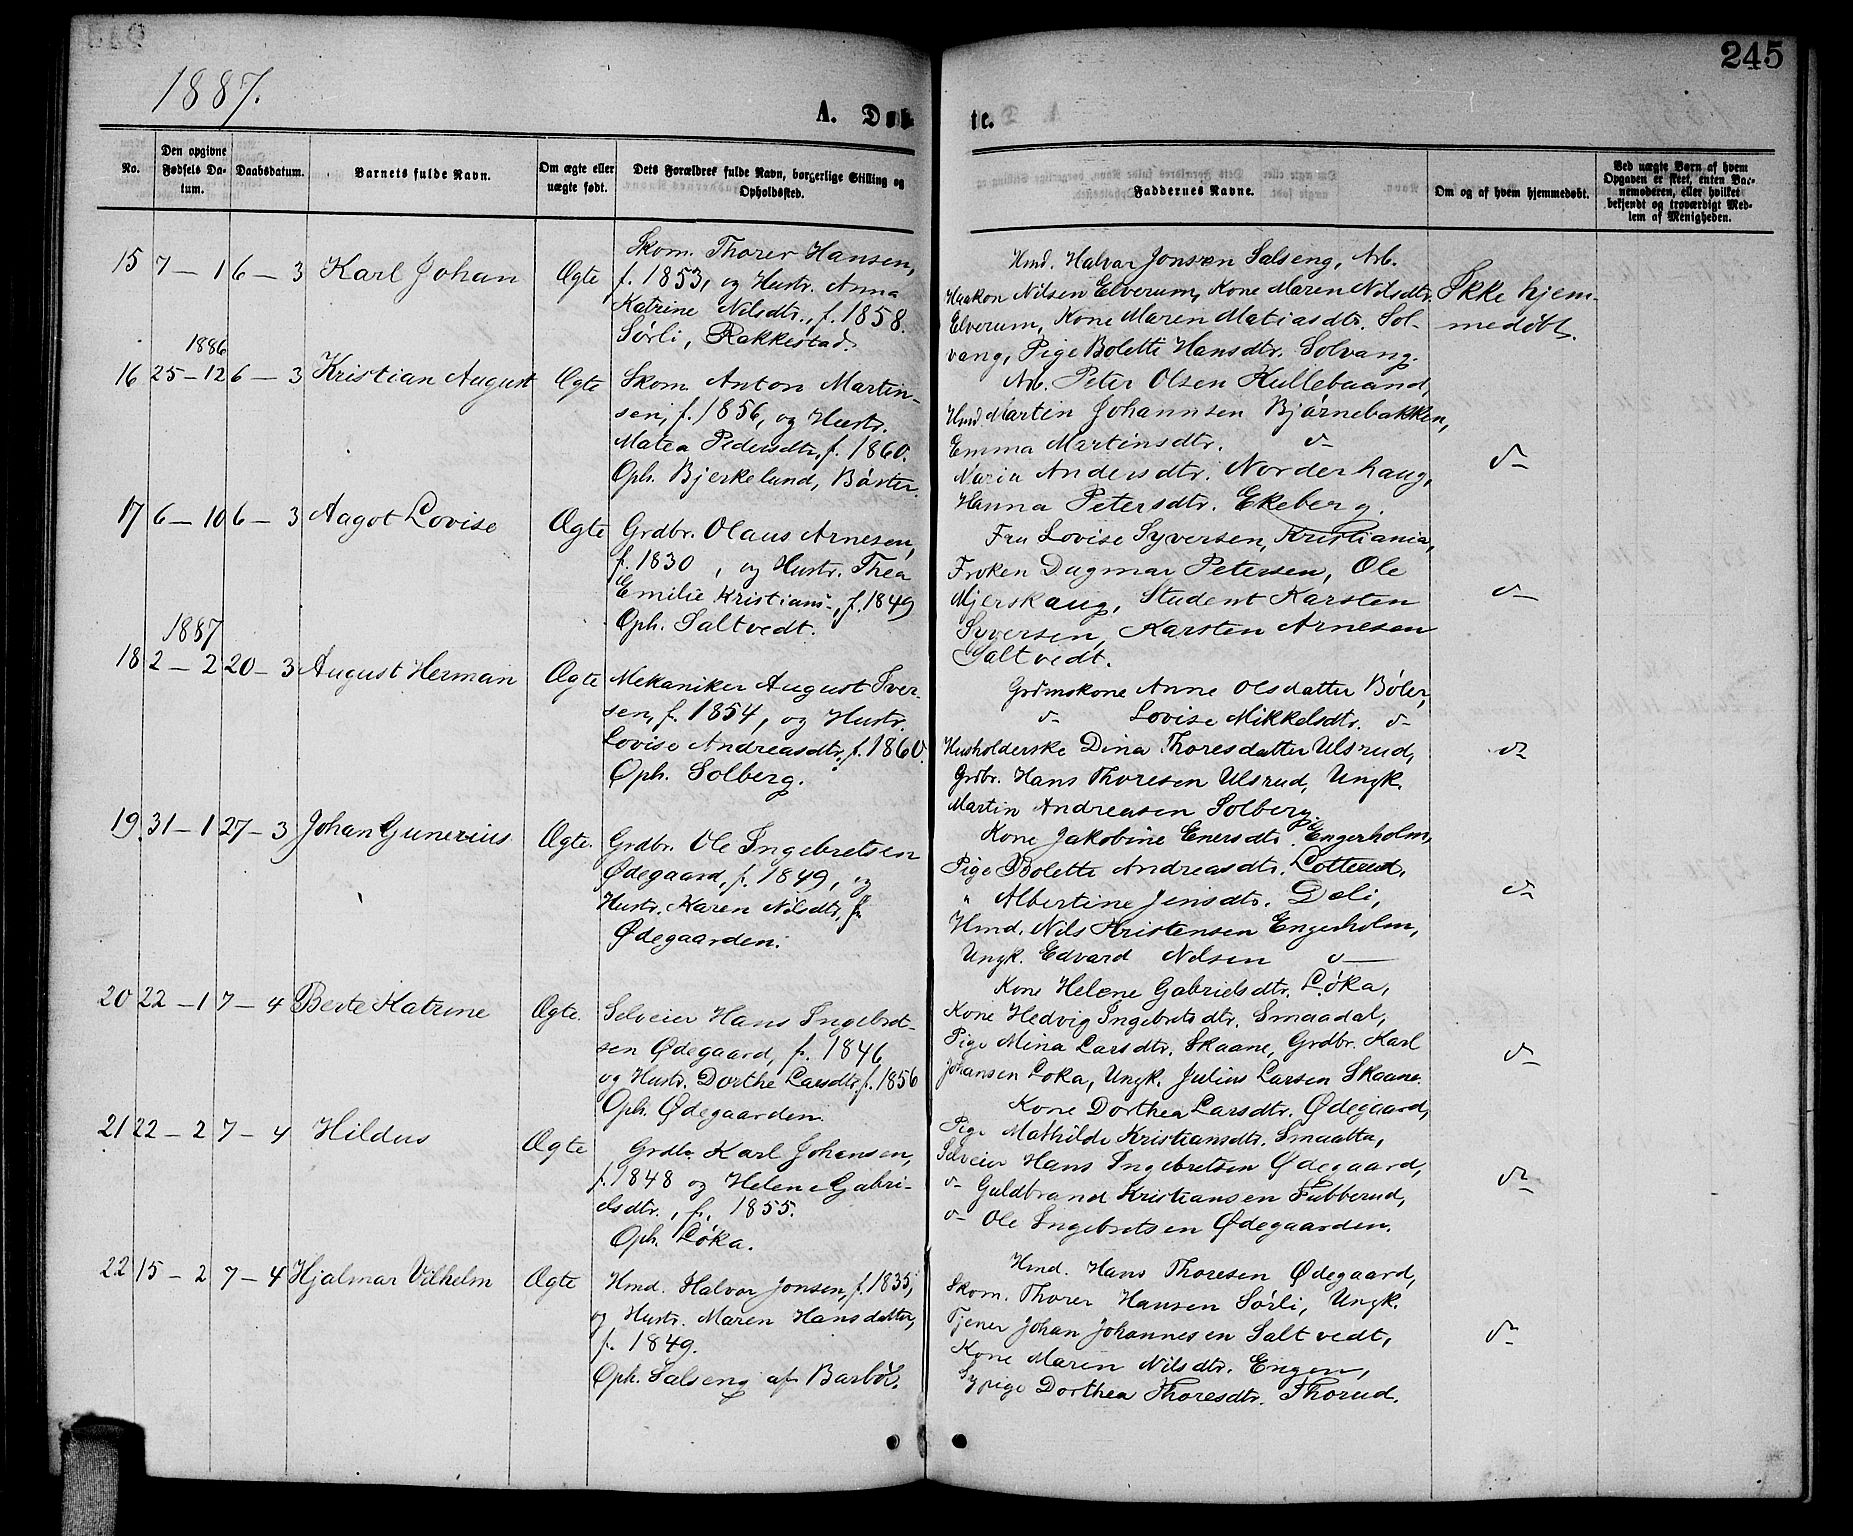 1887.
245
A. Døbte.
No.
Den opgivne Fødsels Datum.
Daabsdatum.
Barnets fulde Navn.
Om ægte eller uægte født.
Dets Forældres fulde Navn, borgerlige Stilling og Opholdssted.
Faddernes Navne.
Om og af hvem hjemmedøbt.
Ved uægte Børn af hvem Opgaven er skeet, enten Barnemoderen, eller hvilket bekjendt og troværdigt Medlem af Menigheden.
15 7 — 1 6 — 3 Karl Johan Ægte
Skom. Thorer Hansen,
f. 1853, og Hustr. Anna
Katrine Nilsdtr., f. 1858.
Sørli, Rakkestad.
Hmd. Halvor Jonsen Salseng, Arb.
Haakon Nilsen Elverum, Kone Maren Nilsdtr.
Elverum, Kone Maren Matiasdtr. Sol-
vang, Pige Bolette Hansdtr. Solvang.
Ikke hjem-
medøbt.
1886
16 25 — 12 6 — 3 Kristian August Ægte
Skom. Anton Martin-
sen, f. 1856, og Hustr.
Matea Pedersdtr., f. 1860.
Oph. Bjerkelund, Børter.
Arb. Peter Olsen Kullebuand,
Hmd. Martin Johannsen Bjørnebakken,
Emma Martinsdtr. d-
Maria Andersdtr. Norderhaug,
Hanna Petersdtr. Ekeberg.
d-
17 6 — 10 6 — 3 Aagot Lovise Ægte
Grdbr. Olaus Arnesen,
f. 1830, og Hustr. Thea
Emilie Kristians-, f. 1849
Oph. Saltvedt.
Fru Lovise Syversen, Kristiania,
Frøken Dagmar Petersen, Ole
Mjerskaug, Student Karsten
Syversen, Karsten Arnesen
Saltvedt.
d-
1887
18 2 — 2 20 — 3 August Herman Ægte
Mekaniker August Iver-
sen, f. 1854, og Hustr.
Lovise Andreasdtr., f. 1860.
Oph. Solberg.
Grdmskone Anne Olsdatter Bøler,
d- Lovise Mikkelsdtr. d-
Husholderske Dina Thoresdatter Ulsrud,
Grdbr. Hans Thoresen Ulsrud, Ungk.
Martin Andreasen Solberg.
d-
19. 31 — 1 27 — 3 Johan Gunerius Ægte.
Grdbr. Ole Ingebretsen
Ødegaard, f. 1849, og
Hustr. Karen Nilsdtr, f.
Ødegaarden.
Kone Jakobine Enersdtr. Engerholm,
Pige Bolette Andreasdtr. Lotterud,
" Albertine Jensdtr. Dæli,
Hmd. Nils Kristensen Engerholm,
Ungk. Edvard Nilsen d-
d-
20 22 — 1 7 — 4 Berte Katrine Ægte.
Selveier Hans Ingebret-
sen Ødegaard, f. 1846
og Hustr. Dorthe Larsdtr. f. 1856
Oph. Ødegaarden.
Kone Helene Gabrielsdtr. Løka,
Kone Hedvig Ingebretsdtr. Smaadal,
Pige Mina Larsdtr. Skaane, Grdbr. Karl
Johansen Løka, Ungk. Julius Larsen Skaane.
d-
21 22 — 2 7 — 4 Hildus Ægte
Grdbr. Karl Johansen,
f. 1848 og Helene Gabri-
elsdtr., f. 1855.
Oph. Løka.
Kone Dorthea Larsdtr. Ødegaard,
Pige Mathilde Kristiansdtr. Smaatta,
Selveier Hans Ingebretsen Ødegaard,
d- Guldbrand Kristiansen Tubberud,
d- Ole Ingebretsen Ødegaarden.
d-
22 15 — 2 7 — 4 Hjalmar Vilhelm Ægte
Hmd. Halvor Jonsen, f. 1835,
og Hustr. Maren Hansdatter,
f. 1849.
Oph. Salseng af Barbøl.
Hmd. Hans Thoresen Ødegaard,
Skom. Thorer Hansen Sørli, Ungk.
Tjener Johan Johannesen Saltvedt,
Kone Maren Nilsdtr. Engen,
Sypige Dorthea Thoresdtr. Thorud.
d-